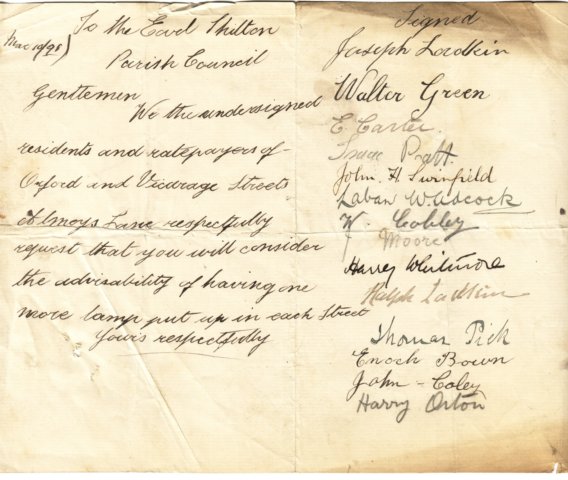 Mar 10/98)
To the Earl Shilton
Parish Council
Gentlemen
We the undersigned
residents and ratepayers of
Oxford and Vicarage Streets
Almeys Lane respectfully
request that you will consider
the advisability of having one
more lamp put up in each Street
Yours respectfully
Signed
Joseph Ladkin
Walter Green
E. Carter
Isaac Pratt.
John. H. Swinfield
Laban Willscock
W. Cobley
J Moore
Harry Whitmore
Ralph Ladkin
Thomas Pick
Enoch Bown
John - Coley
Harry Orton